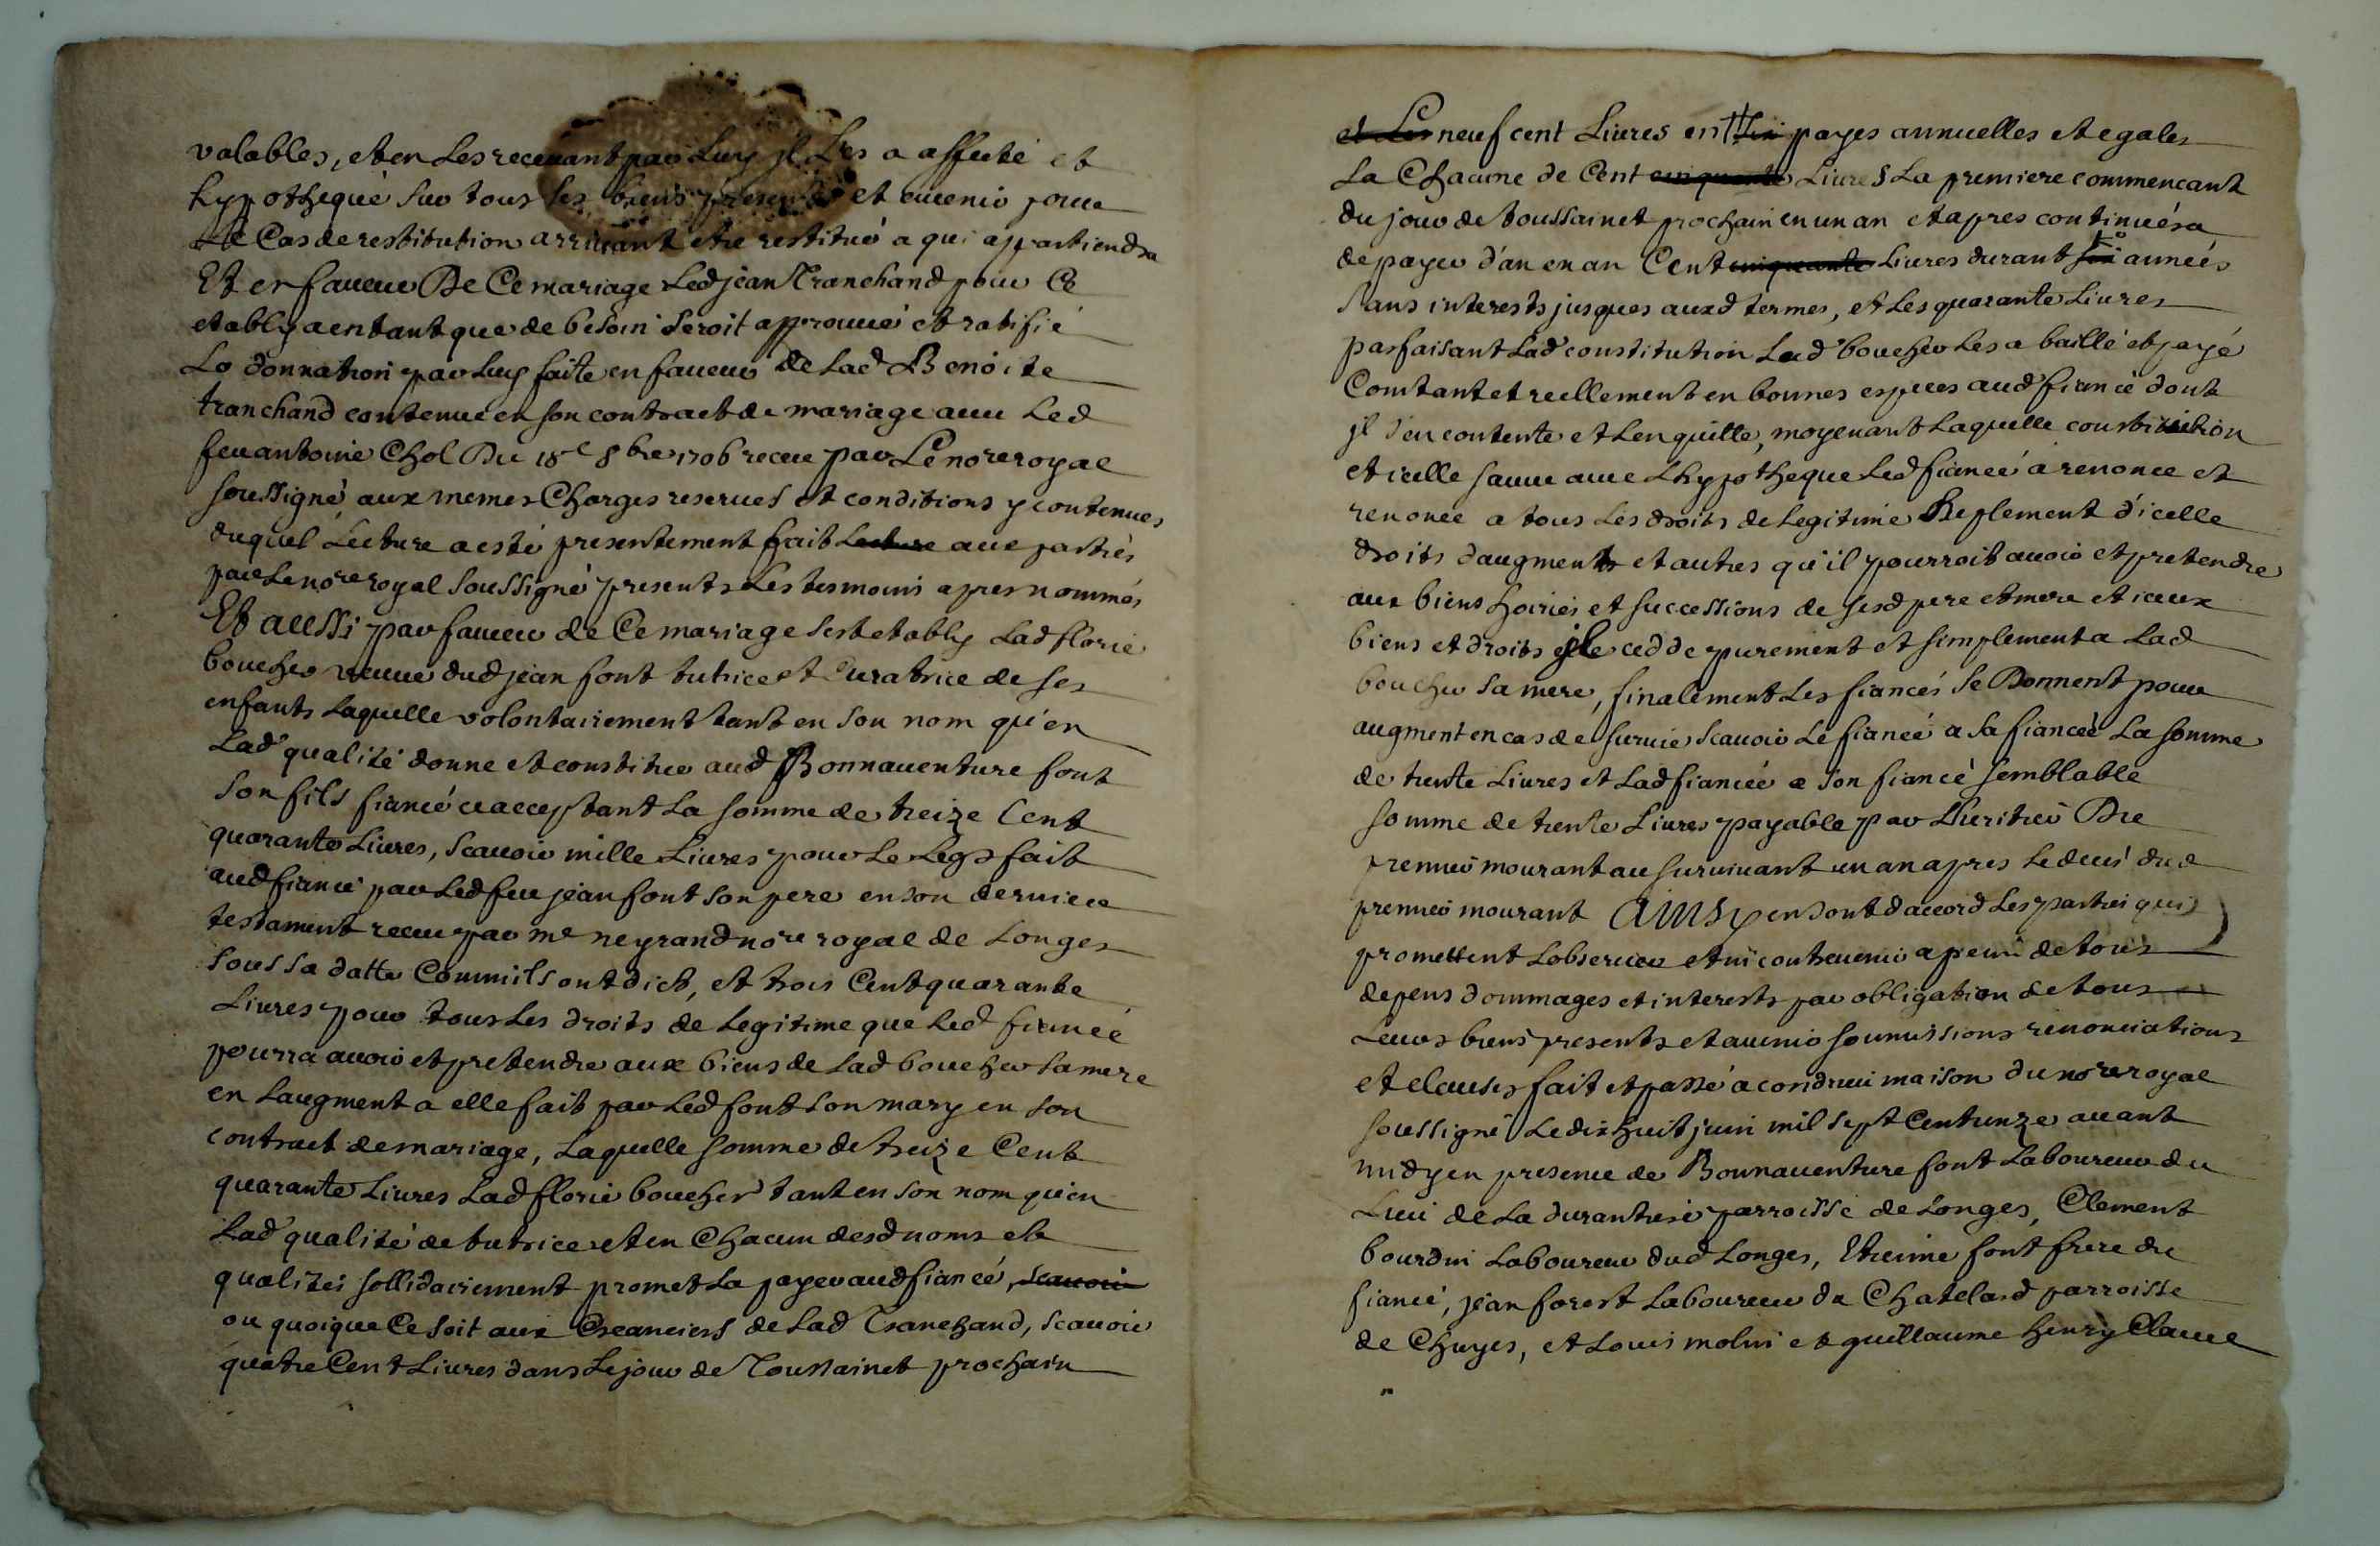 valables, et en les recevant par luy jl les a affecté et
hypothequé sur tous ses biens presents et avenir pour
le Cas de restitution arrivant etre restitué a qui appartiendra
Et en faveur De Ce mariage Led jean Tranchand pour Ce
etably a entant que de besoin seroit approuvé et ratifié
La donnation par luy faite en faveur de Lad Benoite
tranchand contenue en son contract de mariage avec Led
feu antoine Chol Du 18e 8bre 1706 receu par Le nore royal
soussigné, aux memes Charges reserves et conditions y contenues
duquel Lecture a esté presentement fait Lecture aux parties
par le nore royal soussigné presents Les tesmoins apres nommés
Et aussi par faveur de Ce mariage sest etably Lad florie
boucher veuve dud jean font tutrice et Curatrice de ses
enfants laquelle volontairement tant en son nom qu'en
Lad qualité donne et constitue aud Bonnaventure font
son fils fiancé ce acceptant La somme de treize Cent
quarante Livres, scavoir mille Livres pour Le Legs fait
aud fiancé par Led feu jean font son pere en son dernier
testament receu par me neyrand nore royal de Longes
sous sa datte Comm'ils ont dict, et trois Cent quarante
Livres pour tous Les droits de Legitime que Led fiancé
pourra avoir et pretendre aux biens de Lad boucher sa mere
en Laugment a elle fait par Led font son mary en son
contract de mariage, Laquelle somme de treize Cent
quarante Livres Lad florie boucher tant en son nom qu'en
Lad qualité de tutrice et en Chacun desd noms et
qualités sollidairement promet La payer aud fiancé, scavoir
ou quoique Ce soit aux Creanciers de Lad Tranchand, scavoir
quatre Cent Livres dans Le jour de Toussainct prochain
et Les neuf cent Livres en payes annuelles et egales
La Chacune de Cent cinquante Livres La premiere commencant
du jour de toussainct prochain en un an et apres continuera
de payer d'an en an Cent cinquante Livres durant années
sans interests jusques auxd termes, et Les quarante Livres
parfaisant Lad constitution Lad boucher Les a baillé et payé
Comtant et reellement en bonnes especes aud fiancé dont
jl s'en contente et Len quitte, moyenant Laquelle constitution
et icelle sauve avec Lhypotheque Led fiancé a renoncé et
renonce a tous Les droits de Legitime Suplement d'icelle
droits daugments et autres qu'il pourroit avoir et pretendre
aux biens hoiries et successions de sesd pere et mere et iceux
biens et droits jl cedde purement et simplement a Lad
boucher sa mere, finalement Les fiancés se Donnent pour
augment en cas de survie scavoir Le fiancé a sa fiancée La somme
de trente Livres et Lad fiancée a son fiancé semblable
somme de trente Livres payable par Lheritier Du
premier mourant au survivant un an apres Le deces dud
premier mourant Ainsy en sont d'accord Les parties qui
promettent Lobserver et n'y contrevenir a peine de tous
depens dommages et interests par obligation de tous
Leurs biens presents et avenir soumissions renonciations
et clauses fait et passé a condrieu maison du nore royal
soussigné Le dix huit juin mil sept Cent unze avant
midy en presence de Bonnaventure font Laboureur du
Lieu de La durantiere parroisse de Longes, Clement
bourdin Laboureur dud Longes, Etienne font frere du
fiancé, jean forest Laboureur du Chatelard parroisse
de Chuyes, et Louis molin et guillaume henry Clauel